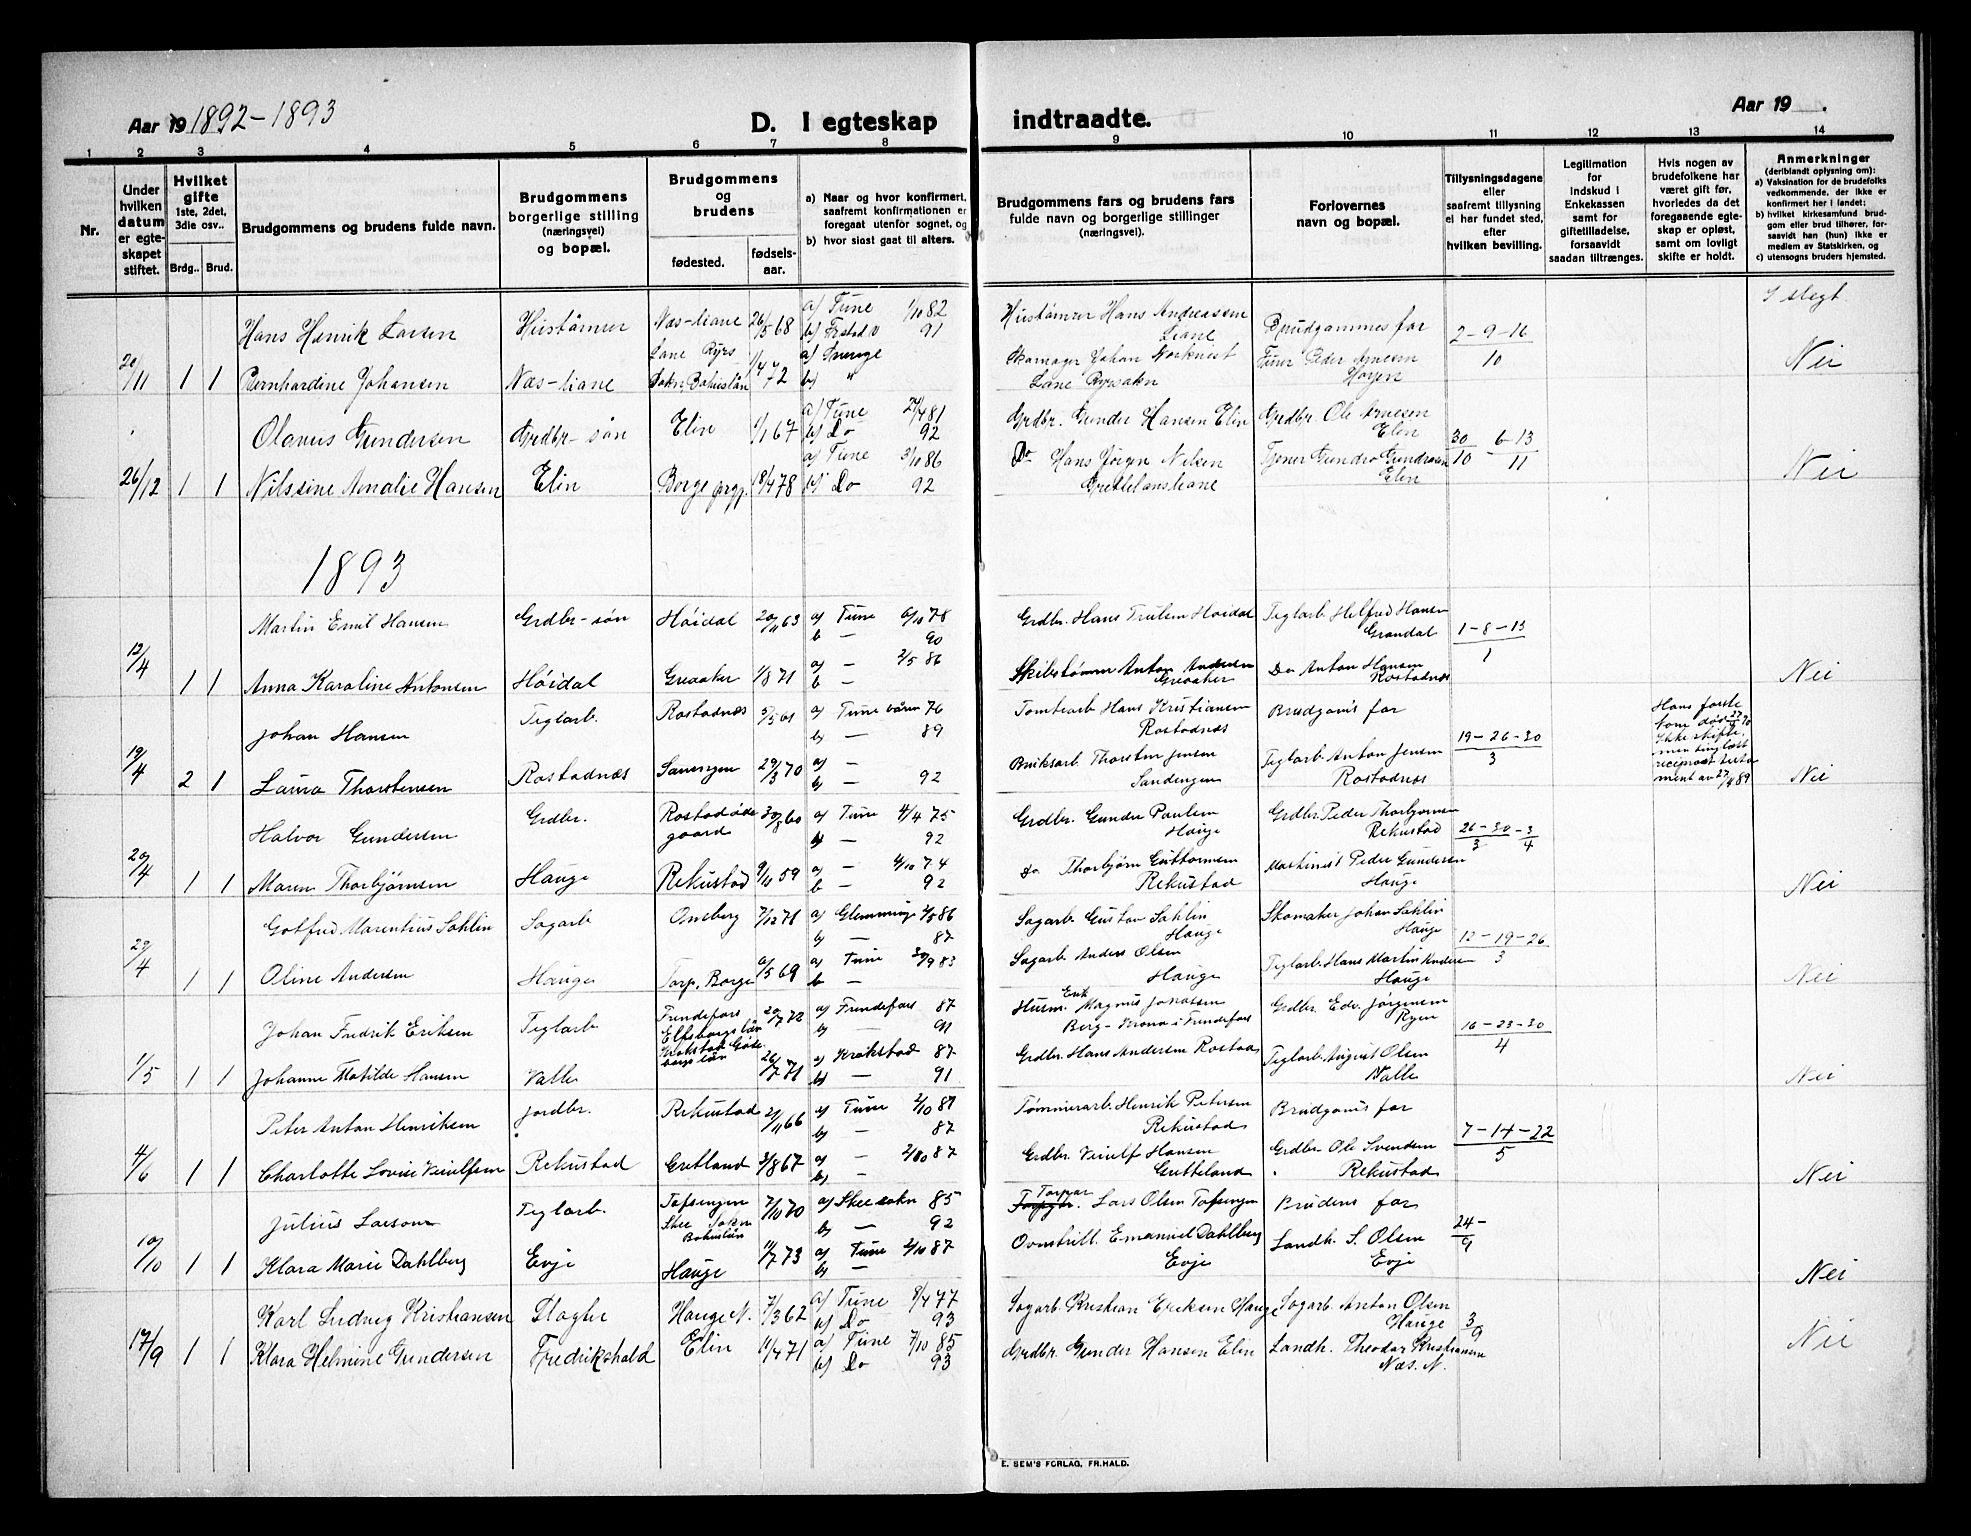 Aar 19 1892-1893
D. I egteskap
indtraadte.
Aar 19 .
1 2 3 4 5 6 7 8 9 10 11 12 13 14
Nr.
Under hvilken datum er egteskapet stiftet.
Hvilket gifte 1ste, 2det, 3die osv..
Brdg.. Brud.
Brudgommens og brudens fulde navn.
Brudgommens borgerlige stilling (næringsvei) og bopæl.
Brudgommens og brudens
fødested. fødsels- aar.
a) Naar og hvor konfirmert, saafremt konfirmationen er foregaat utenfor sognet, og
b) hvor sidst gaat til alters.
Brudgommens fars og brudens fars fulde navn og borgerlige stillinger (næringsvei).
Forlovernes navn og bopæl.
Tillysningsdagene eller saafremt tillysning ei har fundet sted, efter hvilken bevilling.
Legitimation for indskud i Enkekassen samt for giftetilladelse, forsaavidt saadan tiltrænges.
Hvis nogen av brudefolkene har været gift før, hvorledes da det foregaaende egteskap er opløst, samt om lovligt skifte er holdt.
Anmerkninger (deriblandt oplysning om):
a) Vaksination for de brudefolks vedkommende, der ikke er konfirmert her i landet;
b) hvilket kirkesamfund brudgom eller brud tilhører, forsaavidt han (hun) ikke er medlem av Statskirken, og
c) utensogns bruders hjemsted.
Hans Henrik Larsen Næs-liane 26/5 68 a) Tune 1/10 82 b) 91 Hans Andreassen Liane Brudgommes far 2-9-16 I slegt
20/11 1 1 Bernhardine Johansen Næs-liane 1/4 72 a) Sverige b) " Johan 10 Nei
Olavus Gundersen Grdbr-søn Elin 1/1 67 a) Tune 24/4 81 b) Do 92 Grdbr. Gunder Hansen Elin Grdbr. Ole Arnesen Elin 30/10 - 6-13/11
26/12 1 1 Nilssine Amalie Hansen Elin Borge prgj. 18/4 78 a) Tune 3/10 86 b) Do 92 Do Hans Jörgn Nilsen Tjener Gundro Gundrosen Elin Nei
1893
Martin Emil Hansen Grdbr-søn Höidal 20/11 63 a) Tune 6/10 78 b — 90 Grdbr. Hans Trulsen Höidal Teglarb. Helfred Hansen Grøndal 1-8-13
13/4 1 1 Anna Karoline Antonsen Höidal Greaaker 1/8 71 a) — 2/5 86 b — Skibstømrer Anton Andersen Greaaker Do Anton Hansen Rostadnæs 1 Nei
Johan Hansen Teglarb. Rostadnæs 5/5 61 a) Tune våren 76 b) — 89 Tomtearb Hans Kristiansen Rostadnæs Brudgoms far 19-26-30
19/4 2 1 Laura Thorstensen Rostadnæs 29/3 70 a) — b) — 92 Bruksarb. Thorsten Jensen Sandengen Teglarb. Anton Jensen Rostadnæs 3 Nei
Halvor Gundersen Grdbr. Rostadøde gaard 30/8 60 a) Tune 4/4 75 b) — 92 Grdbr. Gundro Paulsen Hauge Grdbr. Peder Thorbjørnsen Rekustad 26-30/3 - 3/4
20/4 1 1 Maren Thorbjørnsen Hauge Rekustad 9/10 59 a) — 4/10 74 b — 92 Do Thorbjørn Guttormsen Rekustad Peder Gundersen Hauge Nei
Gotfred Marentius Sahlin Sagarb Omberg 7/12 71 a) Glemminge 2/5 86 b) — 87 Sagarb Gustav Sahlin Hauge Skomaker Johan Sahlin Hauge 12-19-26
29/4 1 1 Oline Andersen Hauge Torp. Borge 9/5 69 a) Tune 30/9 83 b — Sagarb. Anders Olsen Hauge Teglarb. Hans Martin Andersen Hauge 3 Nei
Johan Fredrik Eriksen Teglarb Elfsborgs län 20/7 72 87 b) — 91 Husm. Erik Magnus Jonassen Grdbr. Edv. Jörgensen Ryen 16-23-30
1/5 1 1 Johanne Matilde Hansen Valle 26/7 71 a) Krokstad 87 b) — 91 Grdbr. Hans Andersen Rostad Teglarb August Olsen Valle 4 Nei
Peter Anton Henriksen Jordbr. Rekustad 21/11 66 a) Tune 2/10 81 b) — 87 Tømmerarb. Henrik Petersen Rekustad Brudgoms far 7-14-22
4/6 1 1 Charlotte Lovise Rekustad 3/8 67 a) — b) — Grdbr. Hansen Gretteland Grdbr. Ole Svendsen Rekustad 5 Nei
Julius Larsson Teglarb. Tofsengen Skee Sokn Bohuslän 7/10 70 a) Skee sokn 85 b) — 92 Torpar Lars Olsen Tofsengen Brudens far 24-
10/10 1 1 Klara Marie Dahlberg Evje Hauge 11/7 73 a) Tune 2/10 87 b) — Emanuel Dahlberg Evje Landh. S. Olsen Evje 9 Nei
Karl Ludvig Kristiansen Slagter Hauge N. 7/3 62 a) Tune 8/4 77 b) Do 93 Sagarb. Kristian Eriksen Hauge Sagarb. Anton Olsen Hauge 3/9
17/9 1 1 Klara Helmine Gundersen Fredrikshald Elin 11/4 71 a) Tune 7/10 85 b) Do 93 Grdbr. Gunder Hansen Elin Landh. Theodor Kristiansen Næs. N. Nei
E. SEM'S FORLAG, FR.HALD.